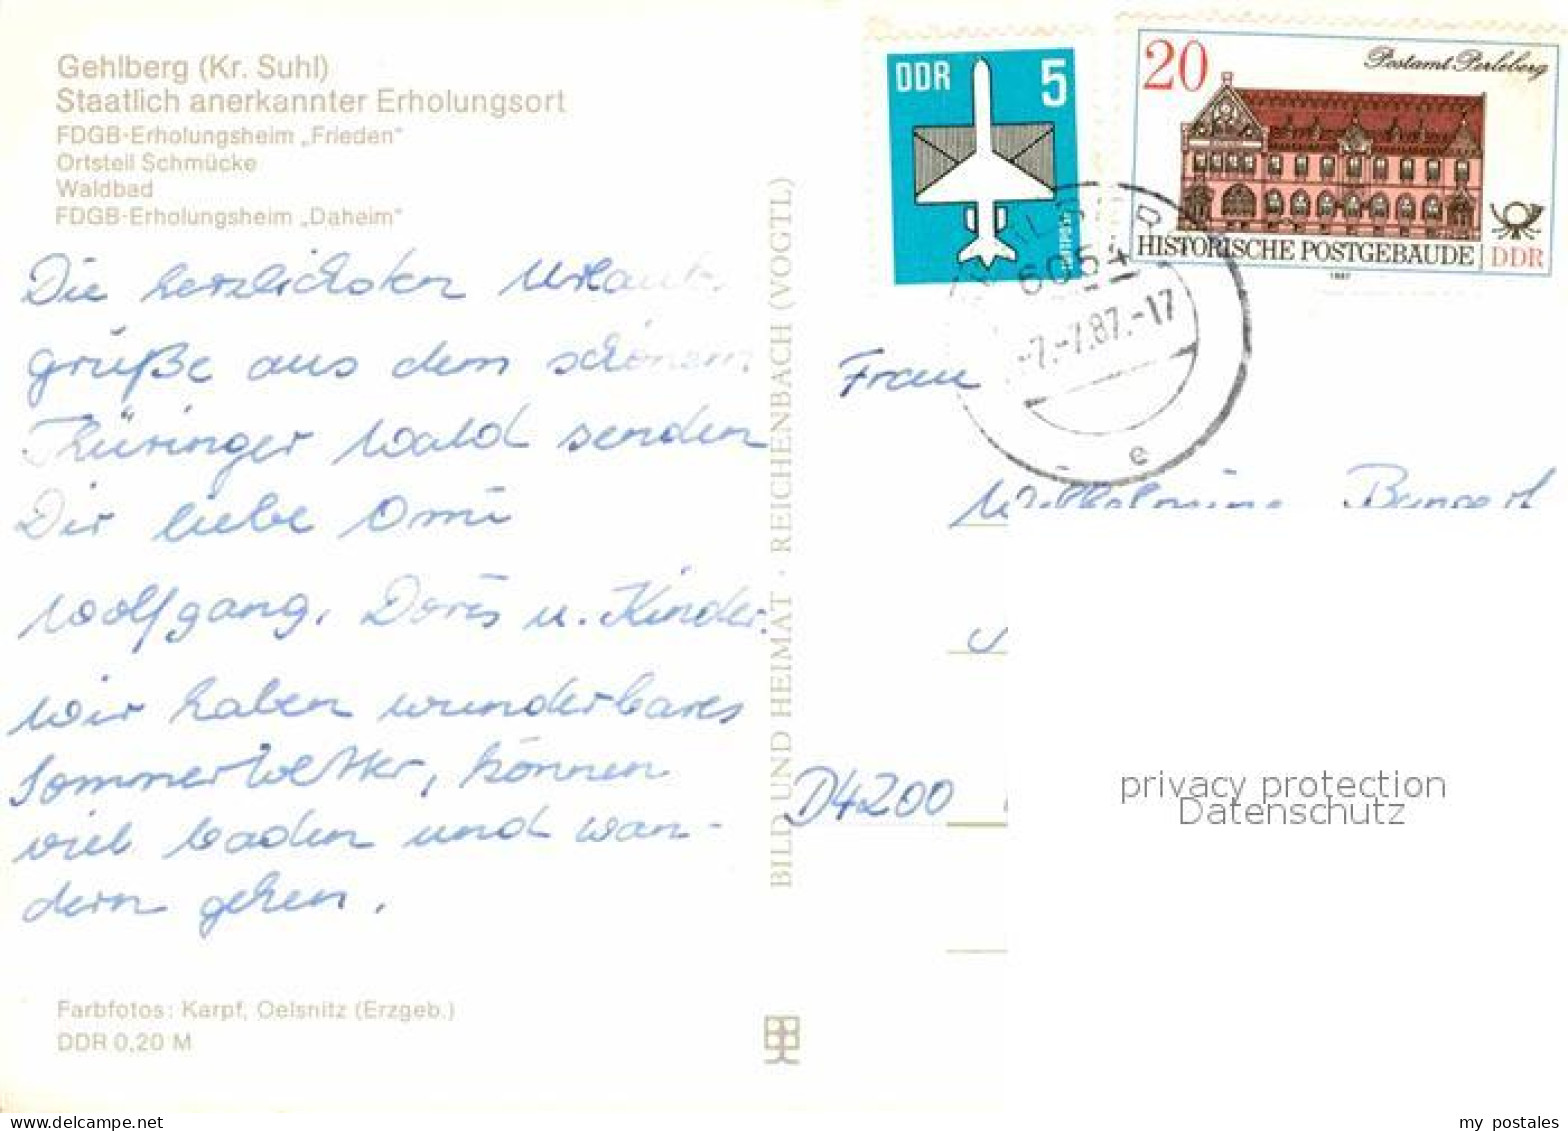 Gehlberg (Kr. Suhl)
Staatlich anerkannter Erholungsort
FDGB-Erholungsheim „Frieden"
Ortsteil Schmücke
Waldbad
FDGB-Erholungsheim „Daheim"
Die herzlichsten Urlaubs-
grüße aus dem schönen
Thüringer Wald senden
Dir liebe Omi
Wolfgang, Doris u. Kinder.
Wir haben wunderbares
Sommerwetter, können
viel baden und wan-
dern gehen.
Farbfotos: Karpf, Oelsnitz (Erzgeb.)
DDR 0,20 M
BILD UND HEIMAT · REICHENBACH (VOGTL)
DDR 5
LUFTPOST
20 Postamt Perleberg
HISTORISCHE POSTGEBÄUDE DDR
1987
6054
-7.-7.87.-17
e
Frau
Wilhelmine
D4200
privacy protection
Datenschutz
my postales